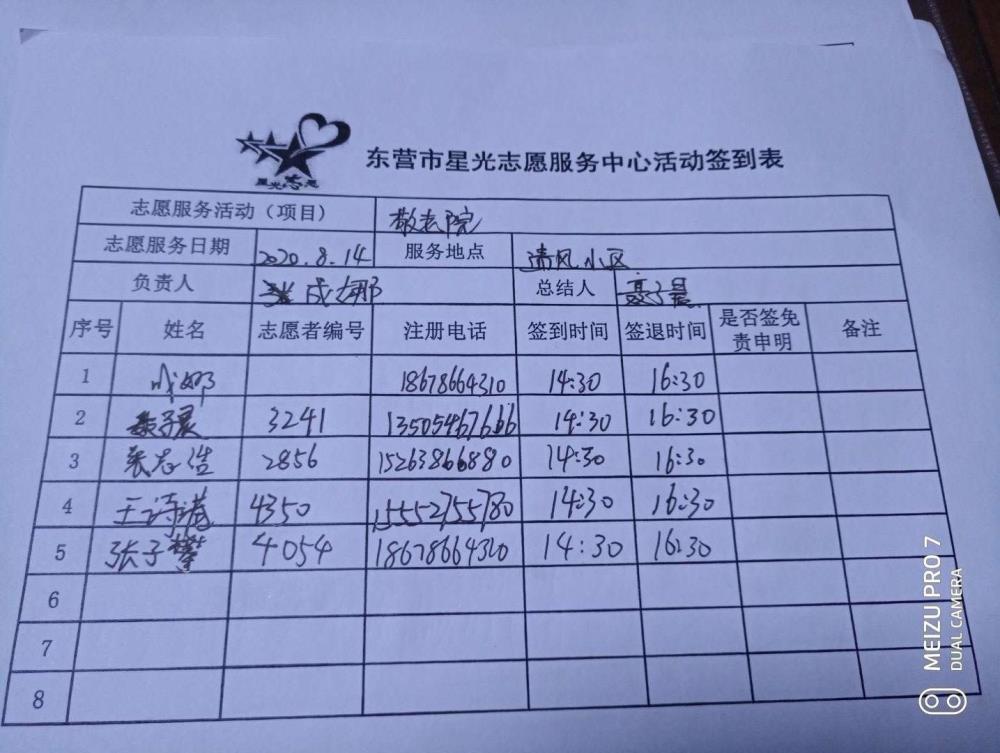 星光志愿
东营市星光志愿服务中心活动签到表
志愿服务活动（项目） 敬老院
志愿服务日期 2020.8.14 服务地点 清风小区
负责人 成娜 总结人 子晨
序号 姓名 志愿者编号 注册电话 签到时间 签退时间 是否签免责申明 备注
1 成娜 18678664310 14:30 16:30
2 子晨 3241 13505467666 14:30 16:30
3 张志浩 2856 15263866880 14:30 16:30
4 王诗港 4350 15552755780 14:30 16:30
5 张子攀 4054 18678664320 14:30 16:30
6
7
8
MEIZU PRO 7
DUAL CAMERA